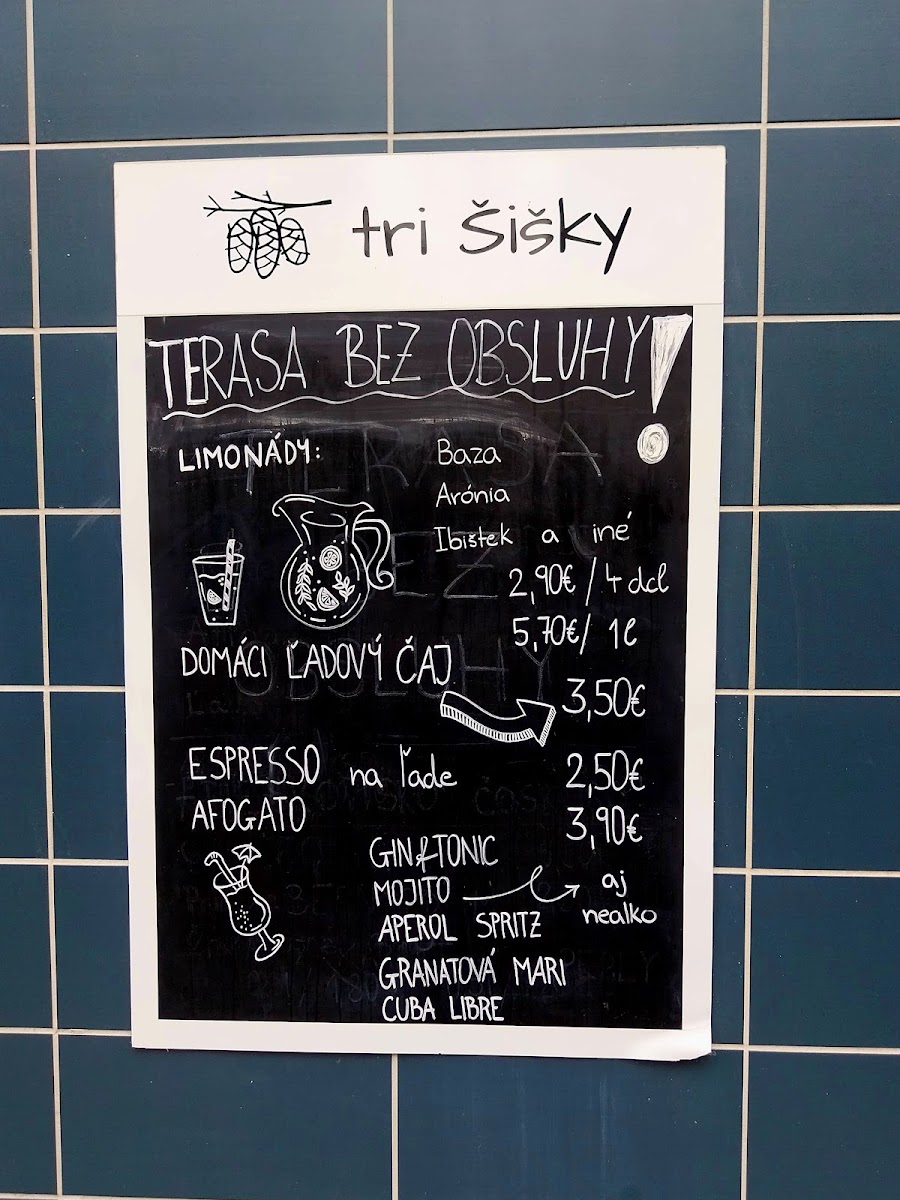 tri šišky
TERASA BEZ OBSLUHY!
LIMONÁDY: Baza
Arónia
Ibištek a iné
2,90€ / 4 dcl
5,70€ / 1 l
DOMÁCI ĽADOVÝ ČAJ
3,50€
ESPRESSO na ľade 2,50€
AFOGATO 3,90€
GIN&TONIC
MOJITO aj
nealko
APEROL SPRITZ
GRANATOVÁ MARI
CUBA LIBRE